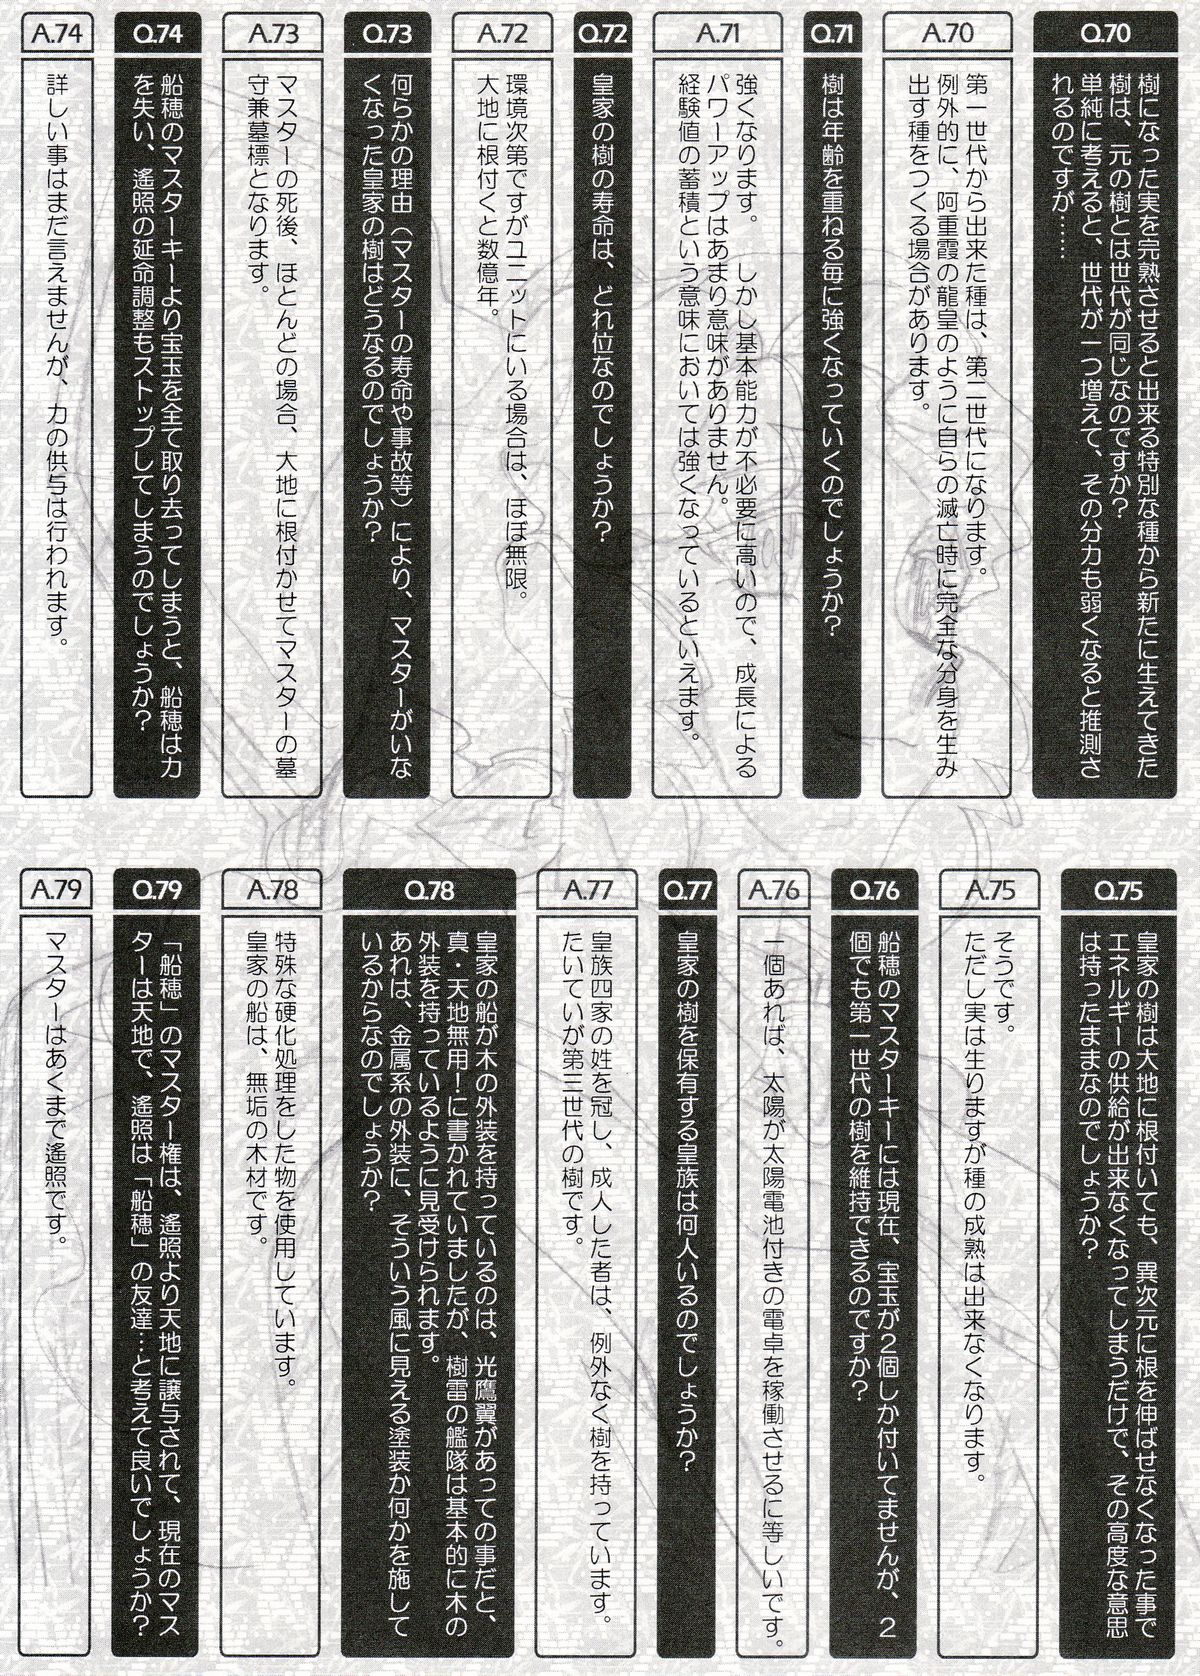 Q.70
樹になった実を完熟させると出来る特別な種から新たに生えてきた
樹は、元の樹とは世代が同じなのですか?
単純に考えると、世代が一つ増えて、その分力も弱くなると推測さ
れるのですが……
A.70
第一世代から出来た種は、第二世代になります。
例外的に、阿重霞の龍皇のように自らの滅亡時に完全な分身を生み
出す種をつくる場合があります。
Q.71
樹は年齢を重ねる毎に強くなっていくのでしょうか?
A.71
強くなります。しかし基本能力が不必要に高いので、成長による
パワーアップはあまり意味がありません。
経験値の蓄積という意味においては強くなっているといえます。
Q.72
皇家の樹の寿命は、どれ位なのでしょうか?
A.72
環境次第ですがユニットにいる場合は、ほぼ無限。
大地に根付くと数億年。
Q.73
何らかの理由(マスターの寿命や事故等)により、マスターがいな
くなった皇家の樹はどうなるのでしょうか?
A.73
マスターの死後、ほとんどの場合、大地に根付かせてマスターの墓
守兼墓標となります。
Q.74
船穂のマスターキーより宝玉を全て取り去ってしまうと、船穂は力
を失い、遙照の延命調整もストップしてしまうのでしょうか?
A.74
詳しい事はまだ言えませんが、力の供与は行われます。
Q.75
皇家の樹は大地に根付いても、異次元に根を伸ばせなくなった事で
エネルギーの供給が出来なくなってしまうだけで、その高度な意思
は持ったままなのでしょうか?
A.75
そうです。
ただし実は生りますが種の成熟は出来なくなります。
Q.76
船穂のマスターキーには現在、宝玉が2個しか付いてませんが、2
個でも第一世代の樹を維持できるのですか?
A.76
一個あれば、太陽が太陽電池付きの電卓を稼働させるに等しいです。
Q.77
皇家の樹を保有する皇族は何人いるのでしょうか?
A.77
皇族四家の姓を冠し、成人した者は、例外なく樹を持っています。
たいていが第三世代の樹です。
Q.78
皇家の船が木の外装を持っているのは、光鷹翼があっての事だと、
真・天地無用!に書かれていましたが、樹雷の艦隊は基本的に木の
外装を持っているように見受けられます。
あれは、金属系の外装に、そういう風に見える塗装か何かを施して
いるからなのでしょうか?
A.78
特殊な硬化処理をした物を使用しています。
皇家の船は、無垢の木材です。
Q.79
「船穂」のマスター権は、遙照より天地に譲与されて、現在のマス
ターは天地で、遙照は「船穂」の友達…と考えて良いでしょうか?
A.79
マスターはあくまで遙照です。